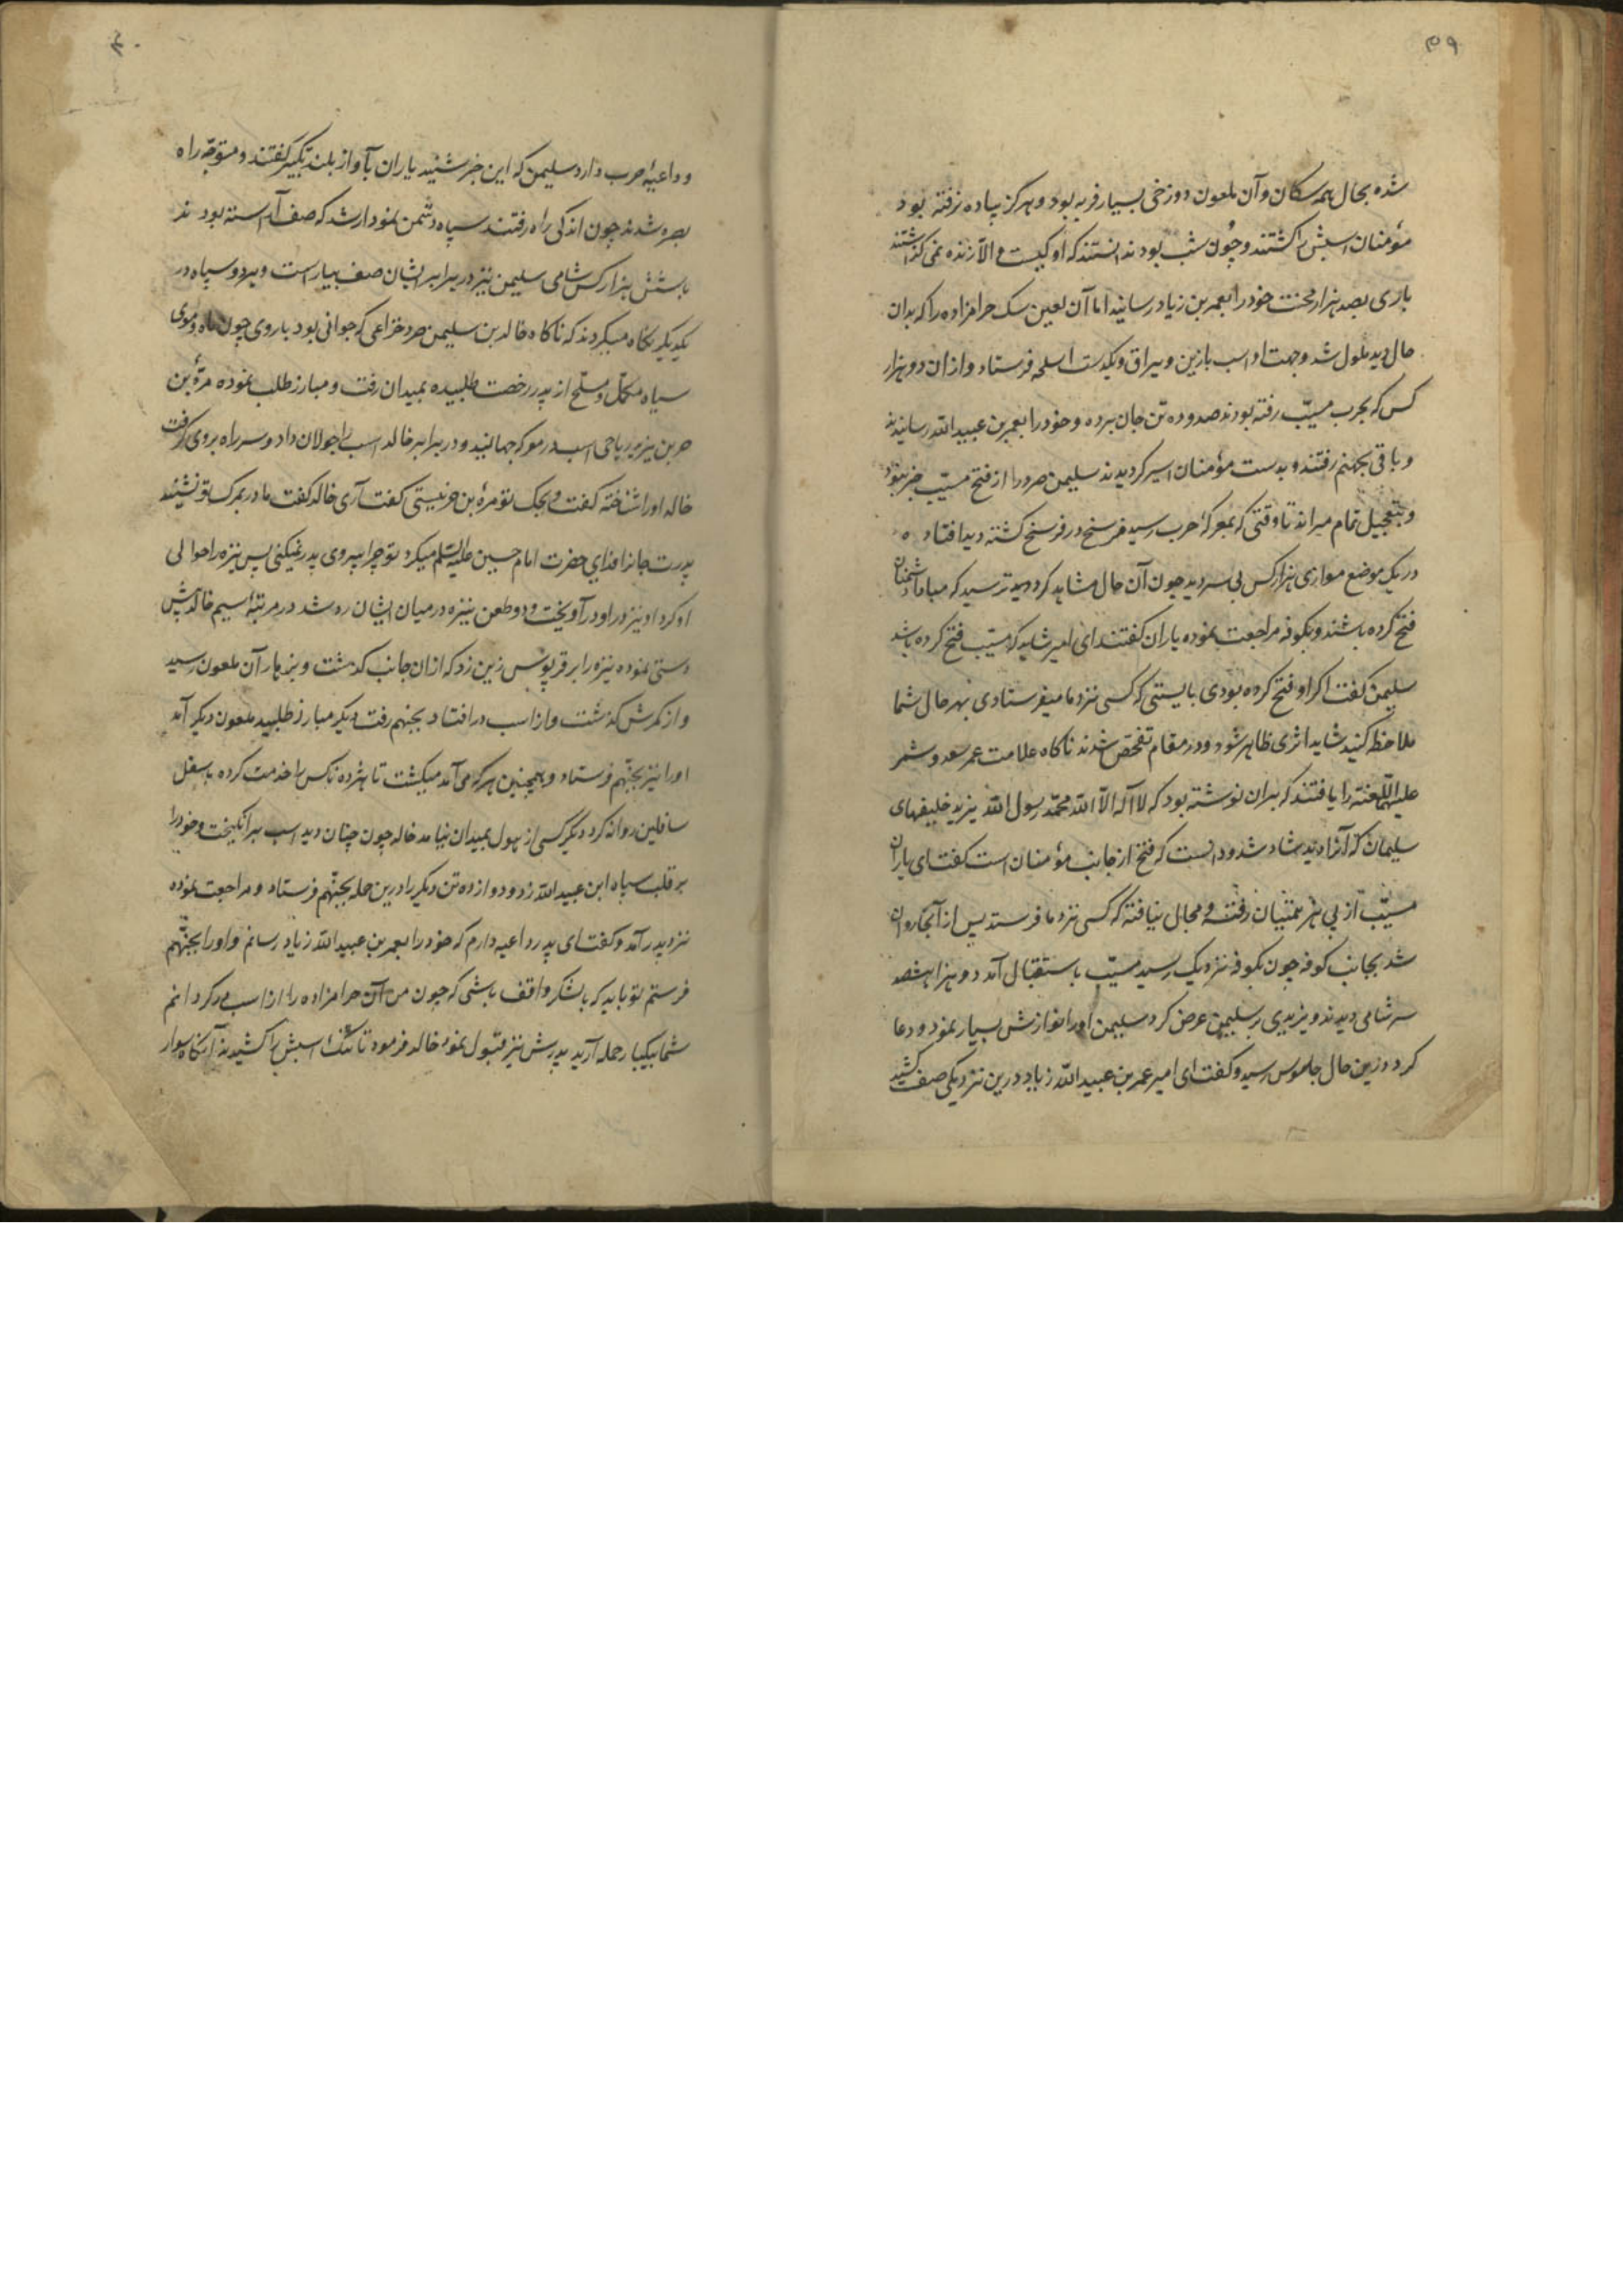 ۳۹
شده بحال همه سکان وآن ملعون دوزخی بسیار فربه بود وهرکز پیاده نرفته بود
مؤمنان اسبش را کشتند وچون شب بود ندانستند که او کیست والّا زنده نمی کذاشتند
باری بصد هزار محنت خودرا بعمر بن زیاد رسانید اما آن لعین سک حرامزاده را که بدان
حال دید ملول شد وجهت او اسب بازین ویراق ویکدست اسلحه فرستاد وازان دوهزار
کس که بحرب مسیّب رفته بودند صد وده تن جان برده وخودرا بعمر بن عبید الله رسانیدند
وباقی بجهنم رفتند وبدست مؤمنان اسیر کردیدند سلیمن صرد را از فتح مسیّب خبر نبود
وبتعجیل تمام میراند تا وقتی که بمعرکهٔ حرب رسید فرسخ در فرسخ کشته دید افتاده
در یک موضع موازی هزار کس بی سر دید چون آن حال مشاهد کرد بترسید که مبادا دشمنان
فتح کرده باشند وبکوفه مراجعت نموده یاران کفتند ای امیر شاید که مسیّب فتح کرده باشد
سلیمن کفت اکر او فتح کرده بودی بایستی که کسی نزد ما میفرستادی بهر حال شما
ملاحظه کنید شاید اثری ظاهر شود ودر مقام تفحّص شدند ناکاه علامت عمر سعد وشمر
علیهما اللّعنة را یافتند که بران نوشته بود که لا اله الّا الله محمّد رسول الله یزید خلیفهای
سلیمان که آنرا دید شاد شد ودانست که فتح از جانب مؤمنان است کفت ای یاران
مسیّب از پی هزیمتیان رفته ومجال نیافته که کسی نزد ما فرستد پس از آنجا روان
شد بجانب کوفه چون بکوفه نزدیک رسید مسیّب باستقبال آمد دوهزار هشصد
سر شامی دیدند ویزیدی بر سلیمن عرض کرد سلیمن اورا نوازش بسیار نمود ودعا
کرد درین حال جاسوس رسید وکفت ای امیر عمر بن عبید الله زیاد درین نزدیکی صف کشید
۴۰
وداعیهٔ حرب دارد سلیمن که این خبر شنید یاران بآواز بلند تکبیر کفتند ومتوجّه راه
بصره شدند چون اندکی راه رفتند سپاه دشمن نمودار شد که صف آراسته بودند
باشش هزار کس شامی سلیمن نیز در برابر ایشان صف بیاراست وهردو سپاه در
یکدیکر نکاه میکردند که ناکاه خالد بن سلیمن صرد خزاعی که جوانی بود باروی چون ماه وموی
سیاه مکمّل ومسلّح از پدر رخصت طلبیده بمیدان رفت ومبارز طلب نموده مرّهٔ بن
حر بن یزید ریاحی اسب در معرکه جهانید ودر برابر خالد اسب را جولان داد وسر راه بروی کرفت
خالد اورا شناخته کفت ویحک تو مرهٔ بن حر نیستی کفت آری خالد کفت مادر بمرک تو نشیند
پدرت جانرا فدای حضرت امام حسین علیه السّلم میکرد تو چرا پیروی پدر نمیکنی پس نیزه را حوالی
او کرد او نیز در او درآویخت ودو طعن نیزه در میان ایشان رد شد در مرتبهٔ سیم خالد پیش
دستی نموده نیزه را بر قرپوس زین زد که ازان جانب کذشت وبزهار آن ملعون رسید
واز کمرش کذشت واز اسب درافتاد بجهنم رفت دیکر مبارز طلبید ملعون دیکر آمد
اورا نیز بجهنّم فرستاد وهمچنین هر که می آمد میکشت تا هژده ناکس را خدمت کرده باسفل
سافلین روانه کرد دیگر کسی از هول بمیدان نیامد خالد چون چنان دید اسب برانکیخت وخودرا
بر قلب سپاه ابن عبید الله زد ودوازده تن دیکر را درین حمله بجهنّم فرستاد ومراجعت نموده
نزد پدر آمد وکفت ای پدر داعیه دارم که خودرا بعمر بن عبید الله زیاد رسانم واورا بجهنّم
فرستم تو باید که بالشکر واقف باشی که چون من آن حرامزاده را از اسب درکردانم
شما بیکبار حمله آرید پدرش نیز قبول نمود خالد فرمود تا تنک اسبش را کشیدند آنکاه سوار